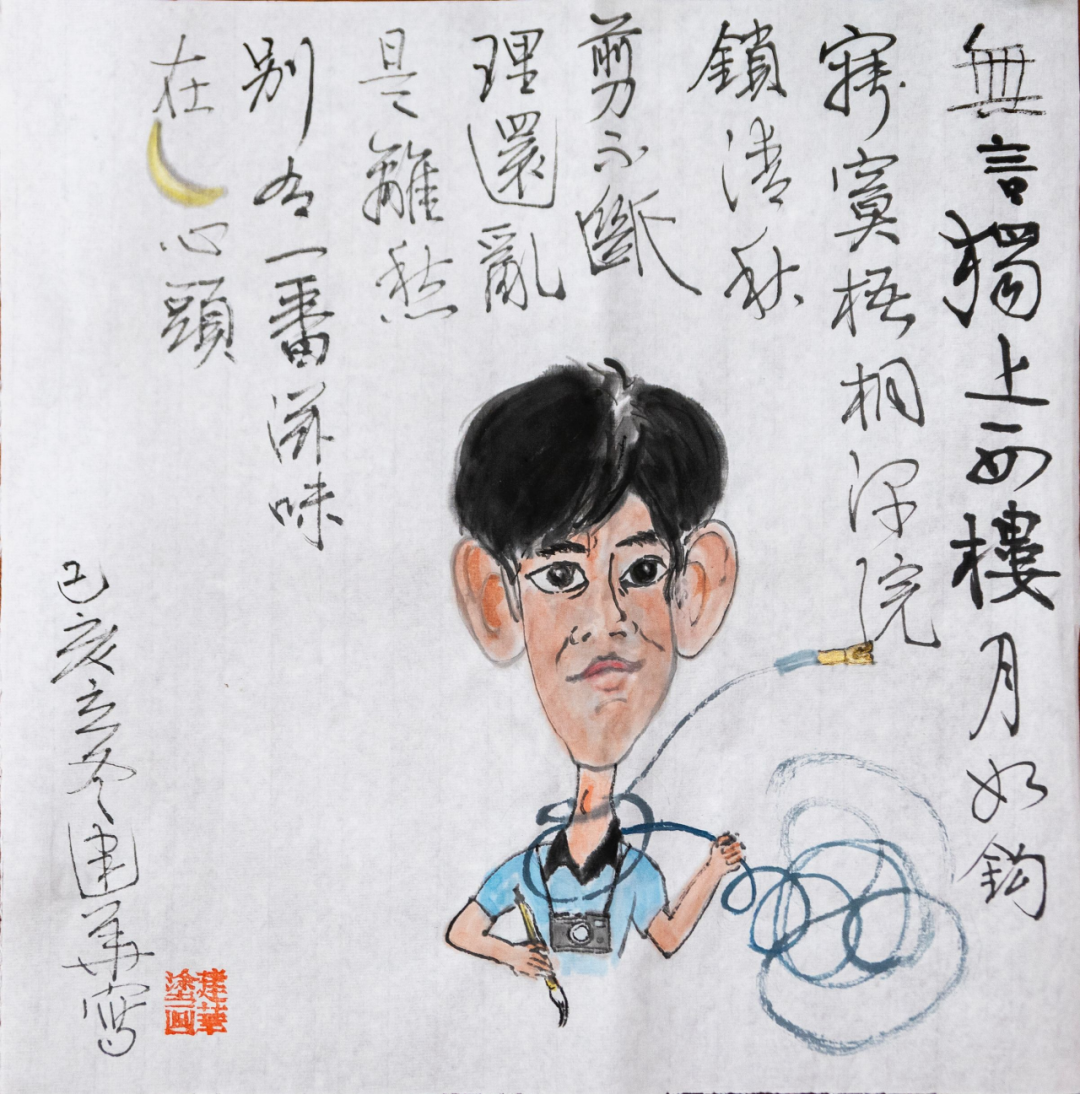 無言獨上西樓月如鈎
寂寞梧桐深院
鎖清秋
剪不斷
理還亂
是離愁
别有一番滋味
在心頭
己亥立冬建華寫
建華
塗画